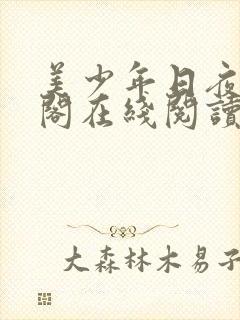 美少年日夜
閣在綫閱讀
大森林木易子